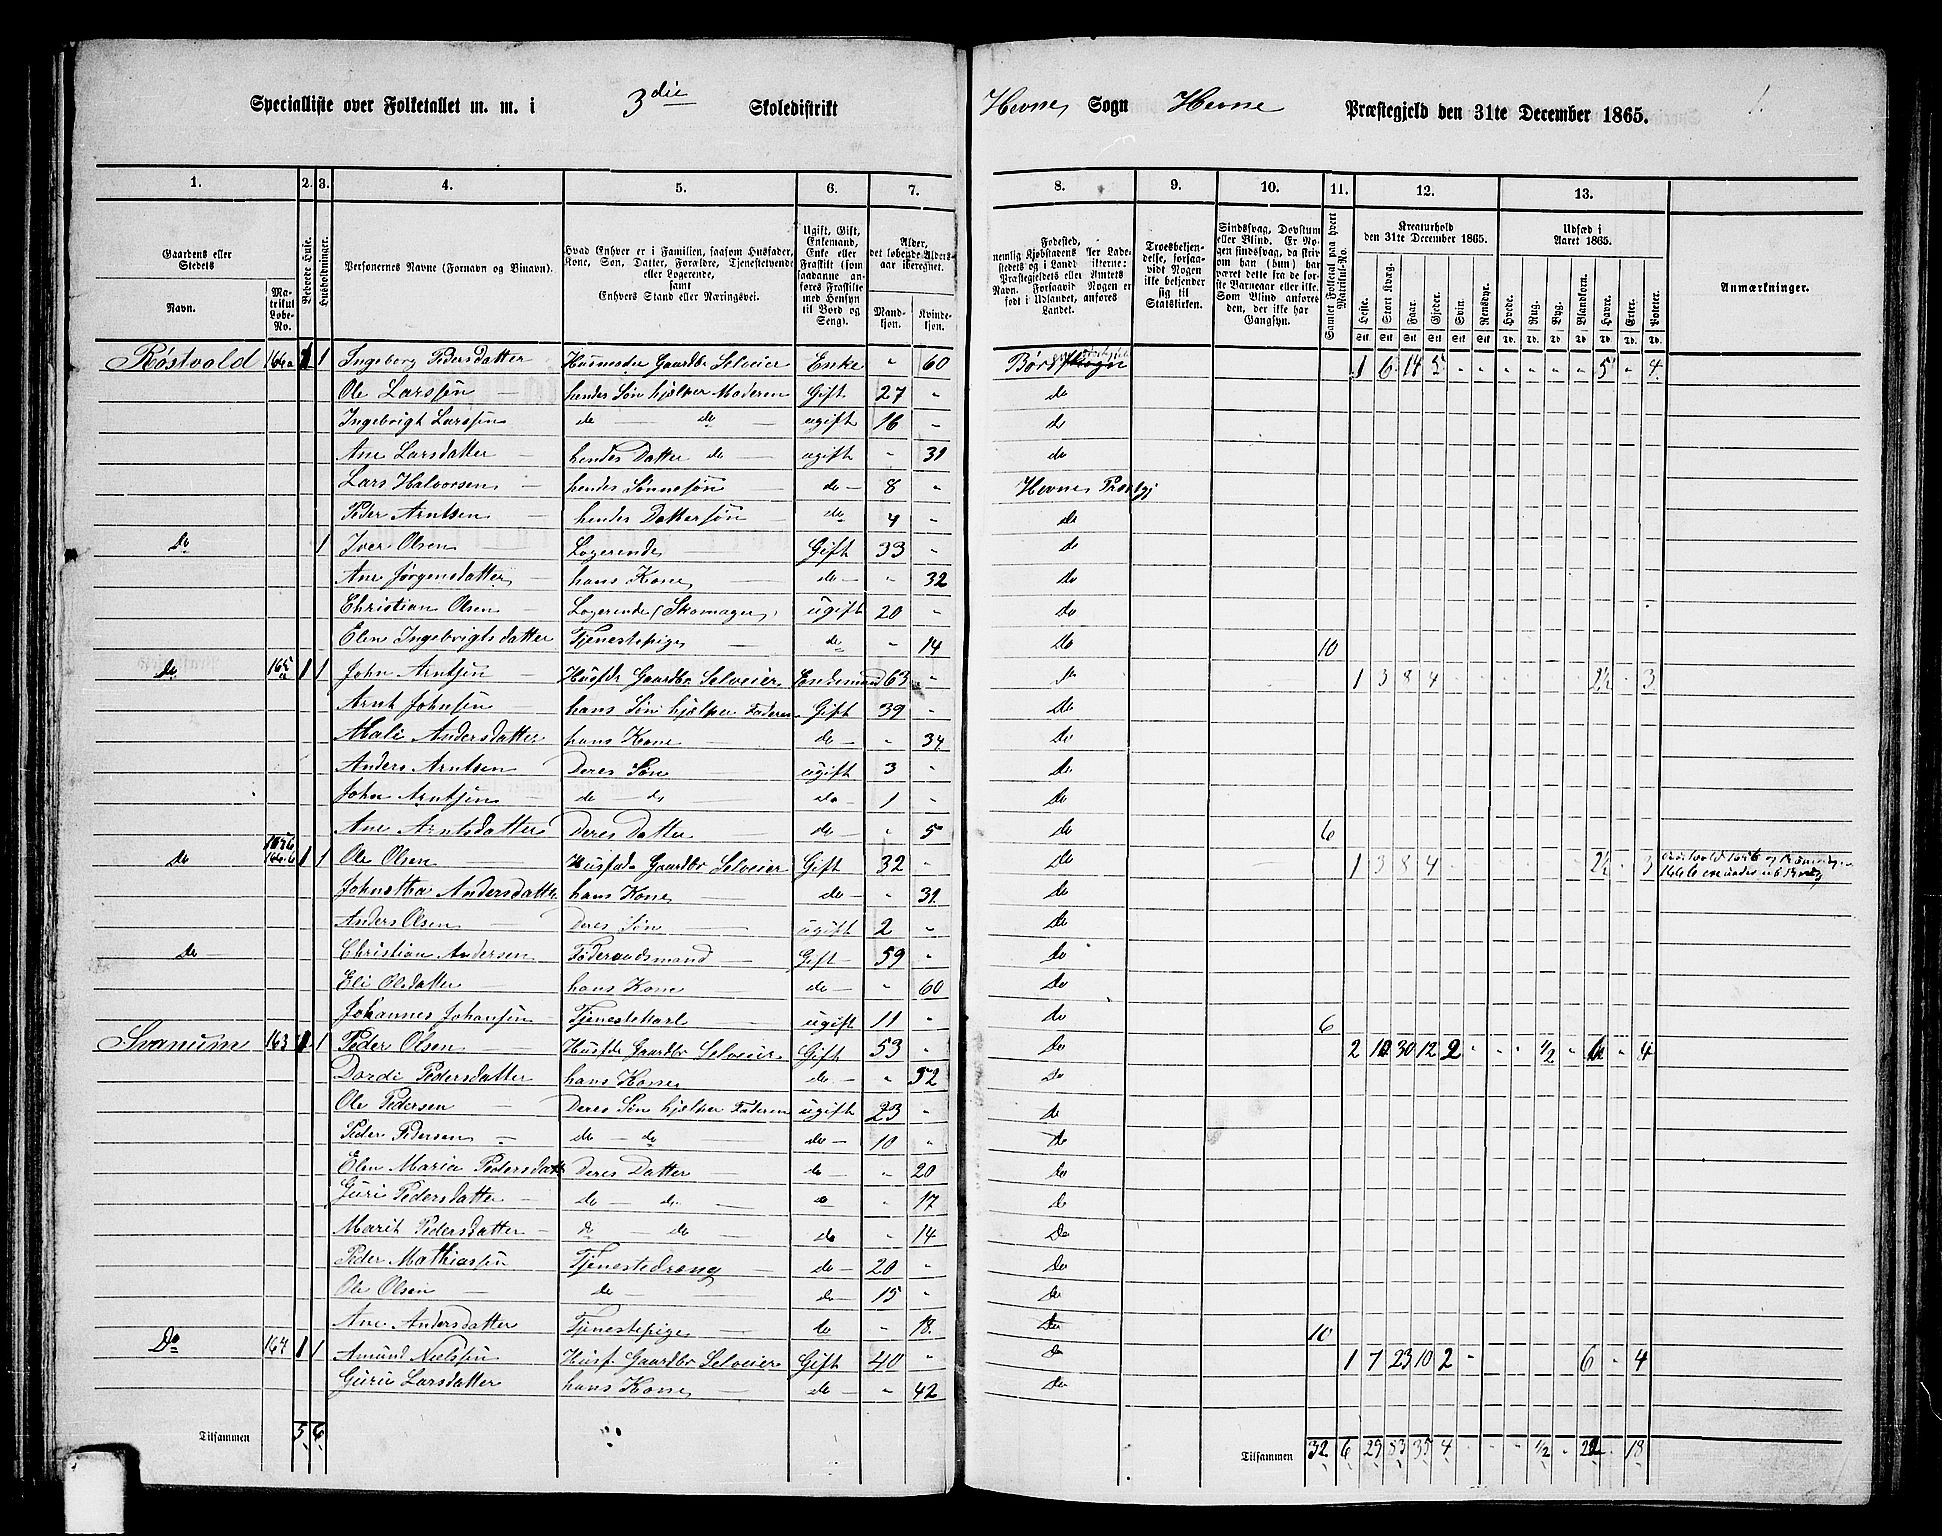 Specialliste over Folketallet m. m. i 3die Skoledistrikt Hevne Sogn Hevne Præstegjeld den 31te December 1865.
1. 2. 3. 4. 5. 6. 7. 8. 9. 10. 11. 12. 13.
Gaardens eller Stedets
Navn.
Matrikul Løbe-No.
Beboede Huse.
Husholdninger.
Personernes Navne (Fornavn og Binavn).
Hvad Enhver er i Familien, saasom Husfader, Kone, Søn, Datter, Forældre, Tjenestetyende eller Logerende,
samt
Enhvers Stand eller Næringsvei.
Ugift, Gift, Enkemand, Enke eller Fraskilt (som saadanne anføres Fraskilte med Hensyn til Bord og Seng).
Alder, det løbende Aldersaar iberegnet.
Mandkjøn. Kvindekjøn.
Samlet Folketal paa hvert Matrikul-No.
Kreaturhold den 31te December 1865.
Heste. Stort Kvæg. Faar. Gjeder. Svin. Rensdyr.
Udsæd i Aaret 1865.
Hvede. Rug. Byg. Blandkorn. Havre. Erter. Poteter.
Anmærkninger.
Røstvold 164a 1 1 Ingeborg Pedersdatter Husmoder Gaardbr Selveier Enke " 60 1 6 14 5 - - - - - - 5 - 4
Ole Larssøn - hendes Søn hjælper Moderen Gift 27 " do
Ingebrigt Larssøn do do - ugift 16 " do
Ane Larsdatter hendes Datter do - ugift " 31 do
Lars Halvorsen hendes Sønnesøn do - 8 " Hevne Præstgj
Peder Arntsen - hendes Dattersøn do 4 - do
Do 1 Iver Olsen - Logerende Gift 33 - do
Ane Jørgensdatter - hans Kone - do - " 32 do
Christian Olsen - Logerende (Skomager) ugift 20 " do
Elen Ingebrigtsdatter Tjenestepige - do - 14 Do 10
do 165 a 1 1 John Arntsen - Husfdr Gaardbr Selveier Enkemand 63 - do 1 3 8 4 - - 2½ - 3
Arnt Johnsen - hans Søn hjælper Faderen Gift 39 - do
Mali Andersdatter hans Kone - do - " 34 do
Anders Arntsen Deres Søn - ugift 3 - do
John Arntsen do do - do - 1 - do
Ane Arntsdatter Deres Datter - do - " 5 do 6
do 1 1 Ole Olsen - Husfadr Gaardbr Selveier Gift 32 - do 1 3 8 4 - - 2½ - 3
Johnetha Andersdatter hans Kone - do - " 31 do
Anders Olsen Deres Søn - ugift 2 - do
do Christian Andersen Føderaadsmand Gift - 59 " do
Eli Olsdatter - hans Kone - do - " 60 do
Johannes Johansen - Tjenestekarl - ugift 11 " do 6
Svanum 163 1 1 Peder Olsen - Husfdr Gaardbr Selveier Gift 53 - do 2 12 30 12 2 - - - ½ - - 4
Dordi Pedersdatter hans Kone - do - " 52 do
Ole Pedersen - Deres Søn hjælper Faderen ugift 23 - do
Peder Pedersen - do - do do - 10 " do
Elen Maria Pedersdatt Deres Datter - do - 20 do
Guri Pedersdatter - do - do - do " 17 do
Marit Pedersdatter - do - do do - 14 do
Peder Mathiassen Tjenestedreng - do - 20 " do
Ole Olsen - do - do - 15 - do
Ane Andersdatter Tjenestepige - do " 18 do 10
Do 164 1 1 Amund Nielssen Husf. Gaardbr Selveier Gift 40 " do 1 7 23 10 2 - 6 - 4
Guru Larsdatter hans Kone - do - " 42 do
Tilsammen 5 6 Tilsammen 32 6 29 83 35 4 - - - - ½ - - 18